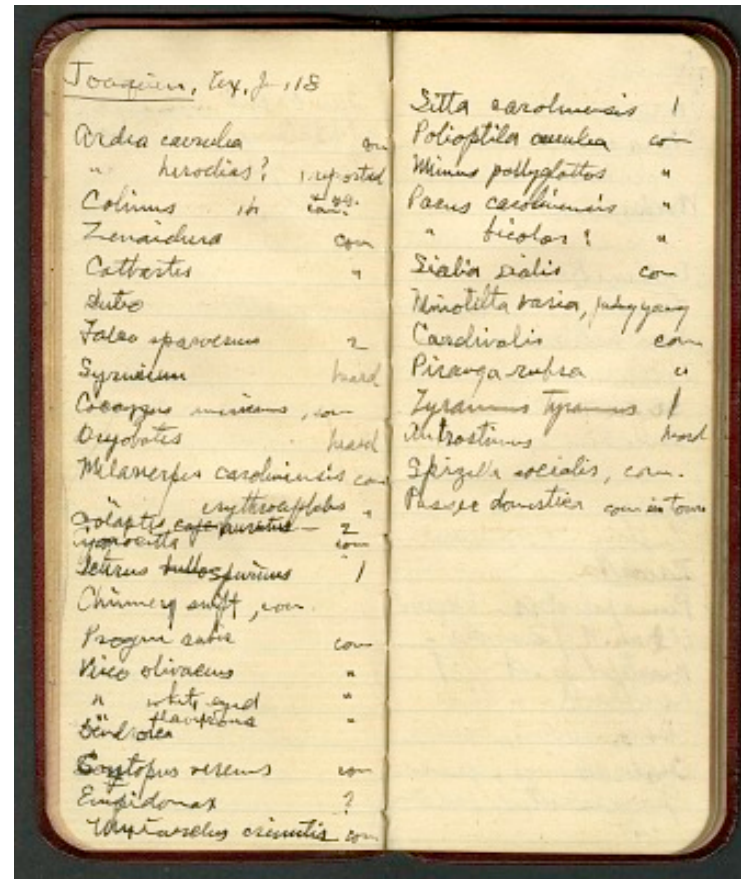 Joaquin, Tex, J 18
Ardea caerulea com
" herodias? 1 reported
Colinus
Zenaidura com
Cathartes "
Buteo
Falco sparverius 2
Syrnium heard
Coccyzus com
Dryobates heard
Melanerpes caroliniensis com
" erythrocephalus "
Colaptes auratus — 2
Cyanocitta com
Icterus spurius 1
Chimney swift, com.
Progne subis com
Vireo olivaceus "
" white eyed "
Dendroica "
Contopus virens com
Empidonax ?
Myiarchus crinitis com
Sitta carolinensis 1
Polioptila caerulea com
Mimus pollyglottos "
Parus carolinensis "
" bicolor? "
Sialia sialis com
Mniotilta varia, young
Cardinalis com
Piranga rubra "
Tyrannus tyrannus 1
Antrostimus heard
Spizella socialis, com.
Passer domestica com in town